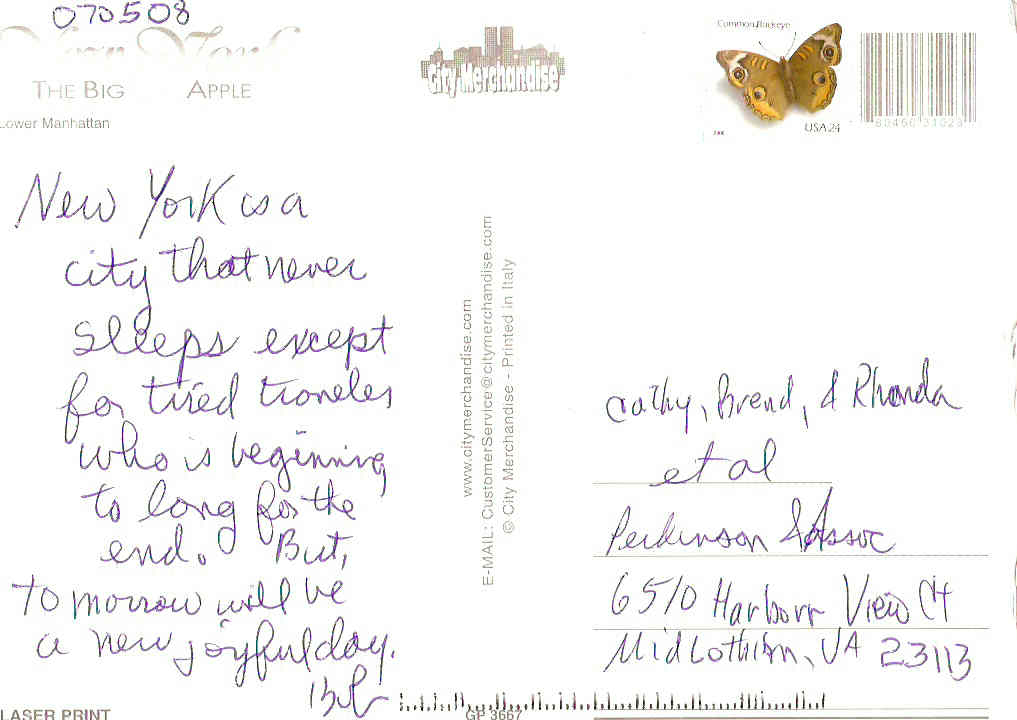 070508
New York
THE BIG APPLE
Lower Manhattan
City Merchandise
Common Buckeye
USA 24
New York is a
city that never
sleeps except
for tired traveler
who is beginning
to long for the
end. But,
tomorrow will be
a new joyful day.
Bob
www.citymerchandise.com
E-MAIL: CustomerService@citymerchandise.com
© City Merchandise - Printed in Italy
Cathy, Brend, & Rhonda
et al
Perkinson & Assoc
6510 Harbour View Ct
Midlothian, VA 23113
LASER PRINT
GP 3667